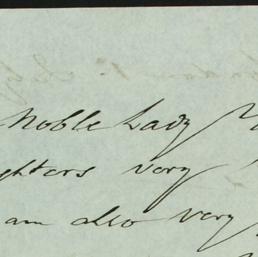 Noble Lady
ghters very
am also very